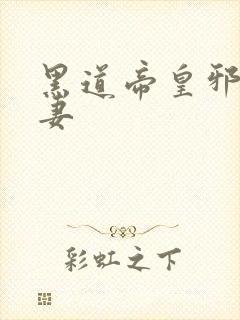 黑道帝皇邪
妻
彩虹之下